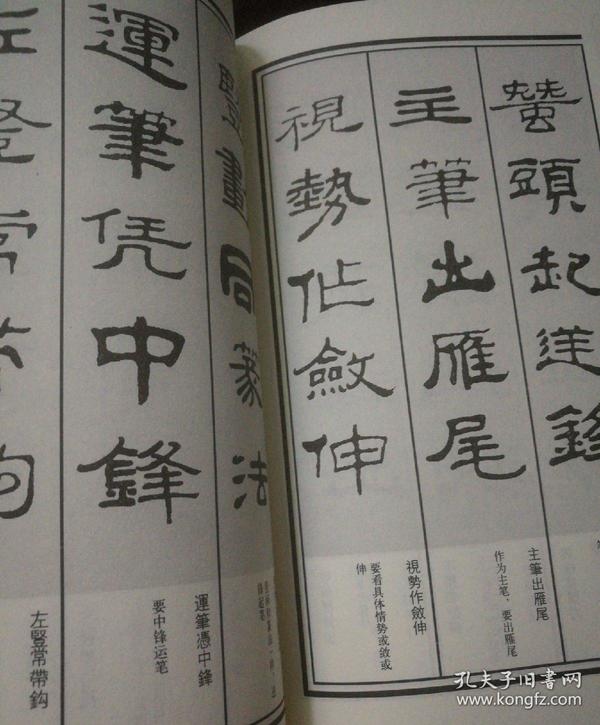 蠶頭起逆鋒
主筆出雁尾
主筆出雁尾
作为主笔，要出雁尾
視勢作斂伸
視勢作斂伸
要看具体情势或敛或
伸
豎畫同篆法
運筆凭中鋒
運筆憑中鋒
要中锋运笔
左豎常帶鈎
左豎常帶鈎
孔夫子旧书网
www.kongfz.com